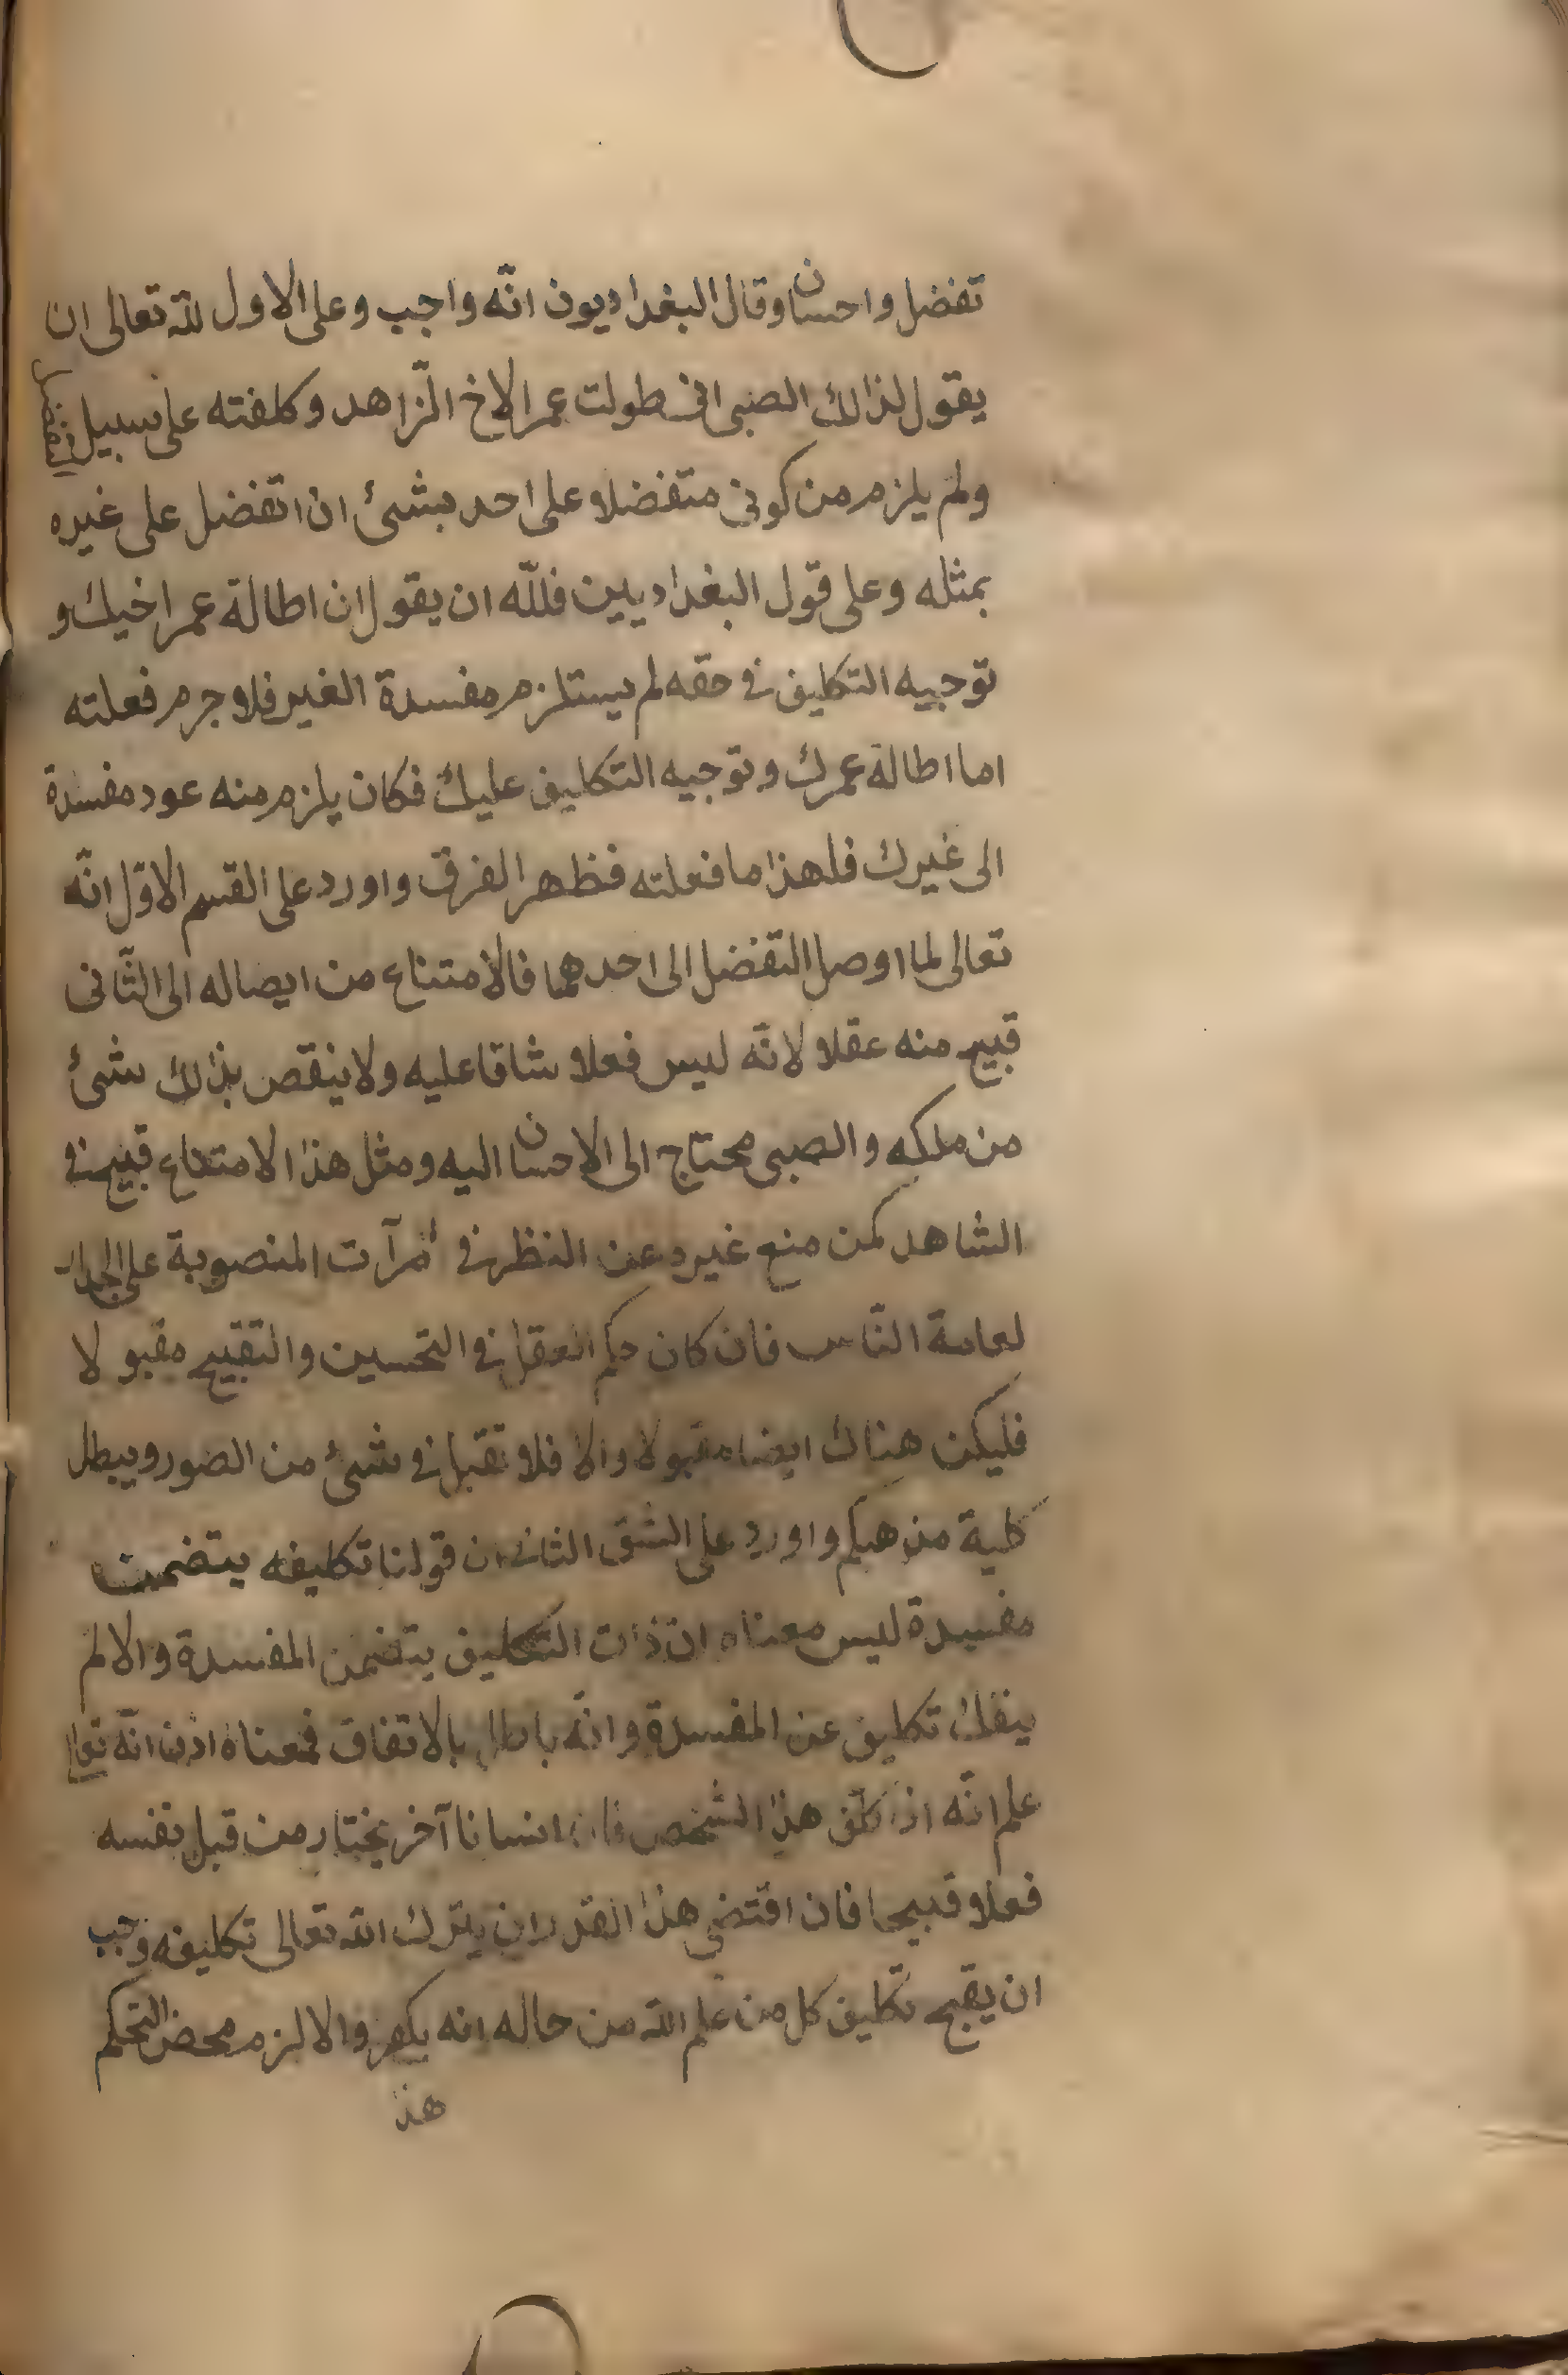 تفضل واحسان وقال البغداديون انّه واجب وعلى الاول للّه تعالى ان
يقول لذالك الصبى انى طولت عمر الاخ الزّاهد وكلفته على سبيل التفضل
ولم يلزم من كونى متفضلا على احد بشئ ان اتفضل على غيره
بمثله وعلى قول البغداديين فللّه ان يقول ان اطالة عمر اخيك و
توجيه التكليف فى حقه لم يستلزم مفسدة الغير فلا جرم فعلته
اما اطالة عمرك وتوجيه التكليف عليك فكان يلزم منه عود مفسدة
الى غيرك فلهذا ما فعلته فظهر الفرق واورد على القسم الاوّل انّه
تعالى لما اوصل التفضل الى احدهما فالامتناع من ايصاله الى الثّانى
قبيح منه عقلا لانّه ليس فعلا شاقا عليه ولا ينقص بذالك شئ
من ملكه والصبى محتاج الى الاحسان اليه ومثل هذا الامتناع قبيح فى
الشاهد كمن منع غيره عن النظر فى مرآت المنصوبة على الجدار
لعامة النّاس فان كان حكم العقل فى التحسين والتقبيح مقبولا
فليكن هناك ايضا مقبولا والا فلا تقبل فى شئ من الصور ويبطل
كلية مذهبكم واورد على الشق الثانى ان قولنا تكليفه يتضمن
مفسدة ليس معناه ان ذات التكليف يتضمن المفسدة والا لم
ينفك تكليف عن المفسدة وانّه باطل بالاتفاق فمعناه اذن انّه تعالى
علم انّه اذا كلّف هذا الشخص فان انسانا آخر يختار من قبل نفسه
فعلا قبيحا فان اقتضى هذا القدر ان يترك اللّه تعالى تكليفه وجب
ان يقبح تكليف كل من علم اللّه من حاله انه يكفر والا لزم محض التحكم
هذا